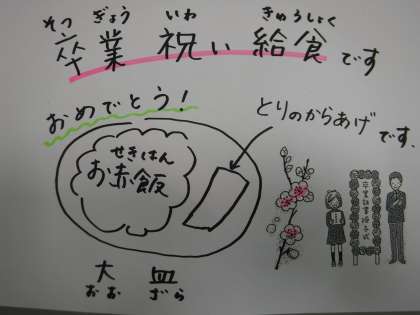 そつ ぎょう いわ きゅうしょく
卒業 祝い 給食です
おめでとう!
とりのからあげです.
せきはん
お赤飯
大皿
おおざら
卒業証書授与式